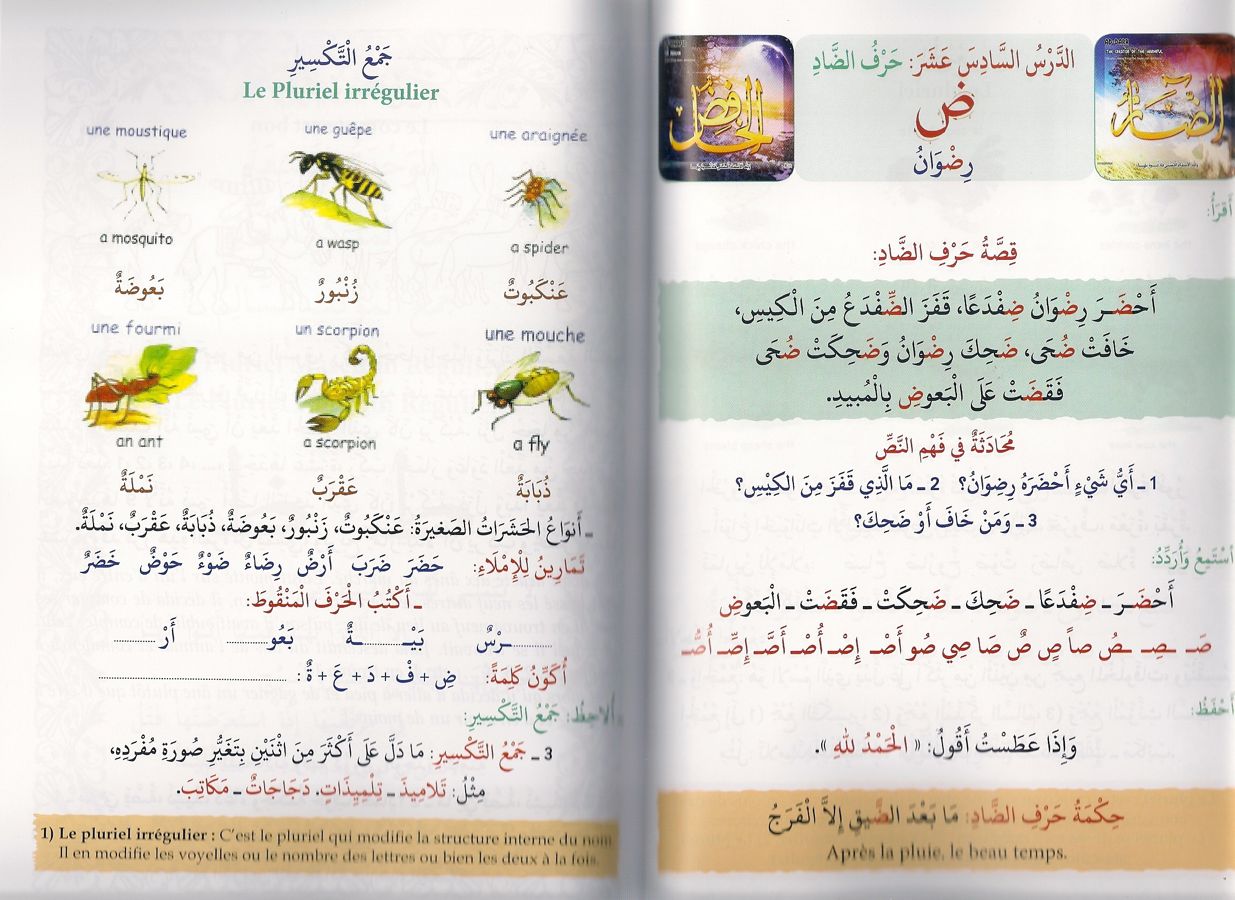 الدَّرْسُ السَّادِسَ عَشَرَ: حَرْفُ الضَّادِ
ض
رِضْوَانُ
الضَّارُّ
الخَافِضُ
THE CREATOR OF THE HARMFUL
أَقْرَأُ:
قِصَّةُ حَرْفِ الضَّادِ:
أَحْضَـرَ رِضْوَانُ ضِفْدَعًا، قَفَزَ الضِّفْدَعُ مِنَ الْكِيسِ،
خَافَتْ ضُحَى، ضَحِكَ رِضْوَانُ وَضَحِكَتْ ضُحَى
فَقَضَتْ عَلَى الْبَعوضِ بِالْمُبيدِ.
مُحَادَثَةٌ فِي فَهْمِ النَّصِّ
1 ـ أَيُّ شَيْءٍ أَحْضَرَهُ رِضِوَانُ؟ 2 ـ مَا الَّذِي قَفَزَ مِنَ الْكِيْسِ؟
3 ـ وَمَنْ خَافَ أَوْ ضَحِكَ؟
أَسْتَمِعُ وَأُرَدِّدُ:
أَحْضَـرَ ـ ضِفْدَعًا ـ ضَحِكَ ـ ضَحِكَتْ ـ فَقَضَتْ ـ الْبَعوضِ
صَـ ـصِـ ـصُ صاً صٍ صٌ صَا صِي صُو أَصْـ إِصْـ أُصْـ أَصَّـ إِصِّـ أُصُّـ
أَحْفَظُ:
وَإِذَا عَطَسْتُ أَقُولُ: « الْحَمْدُ لِلهِ ».
حِكْمَةُ حَرْفِ الضَّادِ: مَا بَعْدَ الضِّيقِ إِلاَّ الْفَرَجُ
Après la pluie, le beau temps.
جَمْعُ التَّكْسِيرِ
Le Pluriel irrégulier
une moustique une guêpe une araignée
a mosquito a wasp a spider
عَنْكَبُوتٌ زُنْبُورٌ بَعُوضَةٌ
une fourmi un scorpion une mouche
an ant a scorpion a fly
ذُبَابَةٌ عَقْرَبٌ نَمْلَةٌ
ـ أَنوَاعُ الحَشَرَاتُ الصَغيرَةُ: عَنْكَبُوتٌ، زَنْبُورٌ، بَعُوضَةٌ، ذُبَابَةٌ، عَقْرَبٌ، نَمْلَةٌ.
تَمَارِينٌ لِلْإِمْلَاءِ: حَضَرَ ضَرَبَ أَرْضٌ رِضَاءٌ ضَوْءٌ حَوْضٌ خَضَرٌ
ـ أَكْتُبُ الْحَرْفَ الْمَنْقُوطَ:
............ـرْسٌ بَيْـ......ـةٌ بَعُو............ أَرْ............
أُكَوِّنُ كَلِمَةً: ضِ + فْ + دَ + عَ + ةٌ : ........................
أُلاَحِظُ: جَمْعُ التَّكْسِيرِ:
3 ـ جَمْعُ التَّكْسِيرِ: مَا دَلَّ عَلَى أَكْثَرَ مِنَ اثْنَيْنِ بِتَغَيُّرِ صُورَةِ مُفْرَدِهِ،
مِثْلُ: تَلاَمِيذَ ـ تِلْمِيذَاتٍ. دَجَاجَاتٌ ـ مَكَاتِبَ.
1) Le pluriel irrégulier : C'est le pluriel qui modifie la structure interne du nom
Il en modifie les voyelles ou le nombre des lettres ou bien les deux à la fois.